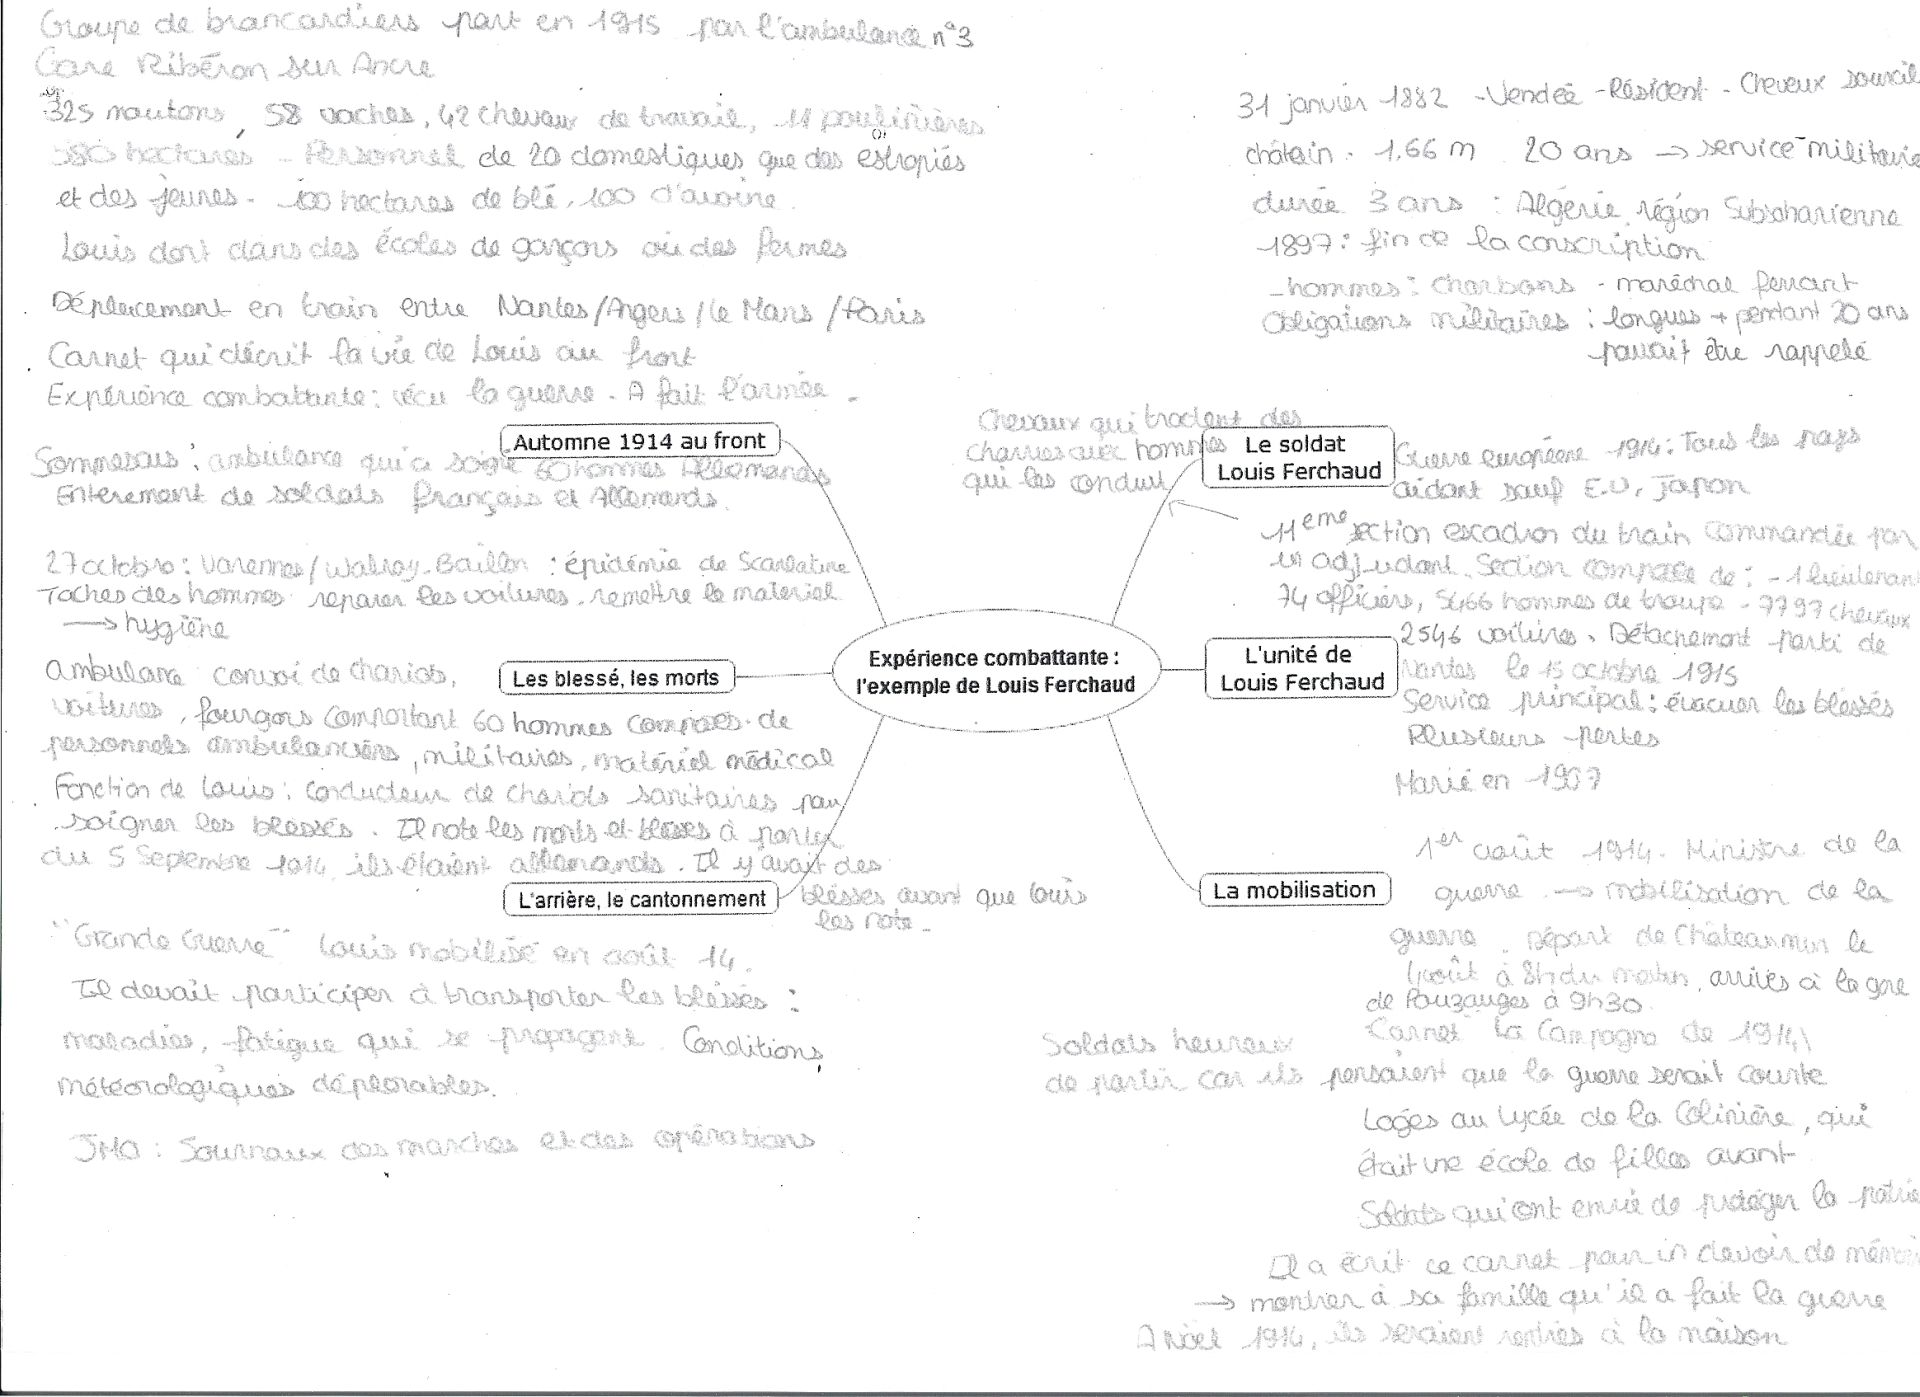 Groupe de brancardiers part en 1915 par l'ambulance n°3
Gare Ribéron sur Ancre
325 moutons, 58 vaches, 42 chevaux de travail, 11 poulinières
580 hectares - Personnel de 20 domestiques que des estropiés
et des jeunes - 100 hectares de blé, 100 d'avoine.
Louis dort dans des écoles de garçons où des fermes
Déplacement en train entre Nantes/Angers/le Mans/Paris
Carnet qui décrit la vie de Louis au front
Expérience combattante : vécu la guerre - A fait l'armée -
Automne 1914 au front
Sommesous : ambulance qui a soigné 60 hommes Allemands
Enterement de soldats français et Allemands.
27 octobre : Varennes/ Baillon : épidémie de Scarlatine
Taches des hommes reparer les voitures, remettre le materiel
→ hygiène
Les blessé, les morts
ambulance convoi de chariots,
voitures, fourgons comportant 60 hommes composés de
personnels ambulanciers, militaires, matériel médical
Fonction de Louis : conducteur de chariots sanitaires pour
soigner les blessés. Il note les morts et blessés à partir
du 5 Septembre 1914, ils étaient allemands. Il y avait des
blésses avant que Louis
les note -
L'arrière, le cantonnement
"Grande Guerre" Louis mobilisé en août 14.
Il devait participer à transporter les blessés :
maladies, fatigue qui se propagent. Conditions
météorologiques déplorables.
JMO : Journaux des marches et des opérations
Expérience combattante :
l'exemple de Louis Ferchaud
31 janvier 1882 - Vendée - Résident - Cheveux sourcil
châtain. 1,66 m 20 ans → service militaire
durée 3 ans : Algérie, région Subsaharienne
1897 : fin de la conscription
- hommes : charbons - maréchal ferrant
Obligations militaires : longues + pendant 20 ans
pouvait être rappelé
Chevaux qui tractent des
charries avec hommes
qui les conduit
Le soldat
Louis Ferchaud
Guerre européene 1914 : Tous les pays
aidant sauf E.U, Japon
11eme section escadron du train commandée par
un adjudant. Section composée de : - 1 lieutenant
74 officiers, 5466 hommes de troupe - 7797 chevaux
2546 voitures. Détachement parti de
Nantes le 15 octobre 1915
Service principal : évacuer les blessés
Plusieurs pertes
Marié en 1907
L'unité de
Louis Ferchaud
La mobilisation
1er août 1914. Ministre de la
guerre → mobilisation de la
guerre. Départ de Châteaumur le
4 août à 8h du matin, arrivés à la gare
de Pouzauges à 9h30.
Carnet "La Campagne de 1914"
Soldats heureux
de partir car ils pensaient que la guerre serait courte
Logés au Lycée de la Colinière, qui
était une école de filles avant
Soldats qui ont envie de protéger la patrie
Il a écrit ce carnet pour un devoir de mémoire
→ montrer à sa famille qu'il a fait la guerre
A Noël 1914, ils seraient rentrés à la maison